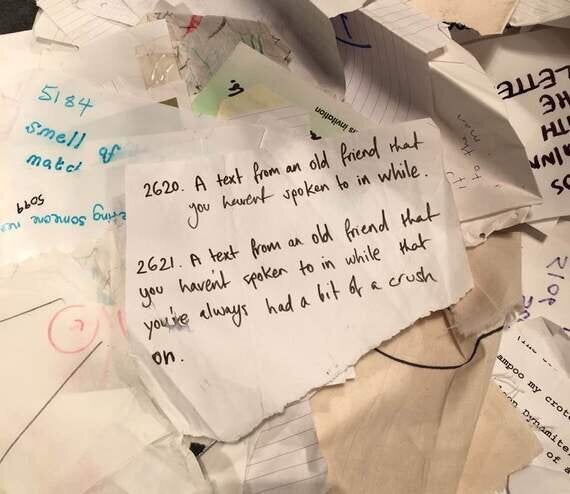 5184
smell
matd of
5099
ting someone
is invitation
LETTE
HE
TH
INN
OS
2620. A text from an old friend that
you havent spoken to in while.
2621. A text from an old friend that
you haven't spoken to in while that
you're always had a bit of a crush
on.
ampoo my crot
Dynamite,
of a